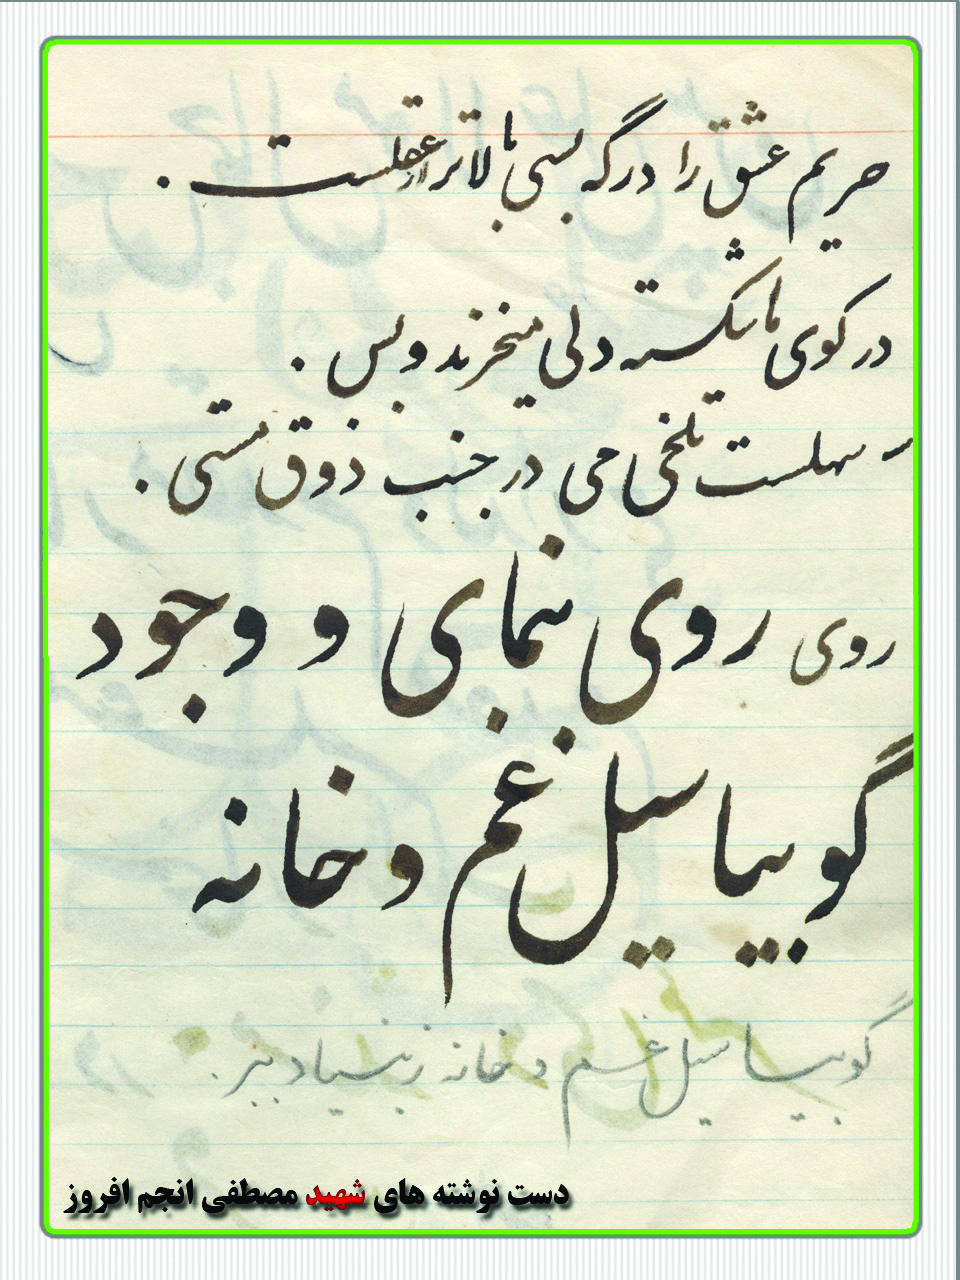 حریم عشق را درگه بسی بالاتر از عقلست .
در کوی ما شکسته دلی میخرند و بس .
سهلست تلخی می در جنب ذوق مستی .
روی روی بنمای و وجود
گو بیا سیل غم و خانه
گو بیا سیل غم و خانه ز بنیاد ببر .
دست نوشته های شهید مصطفی انجم افروز